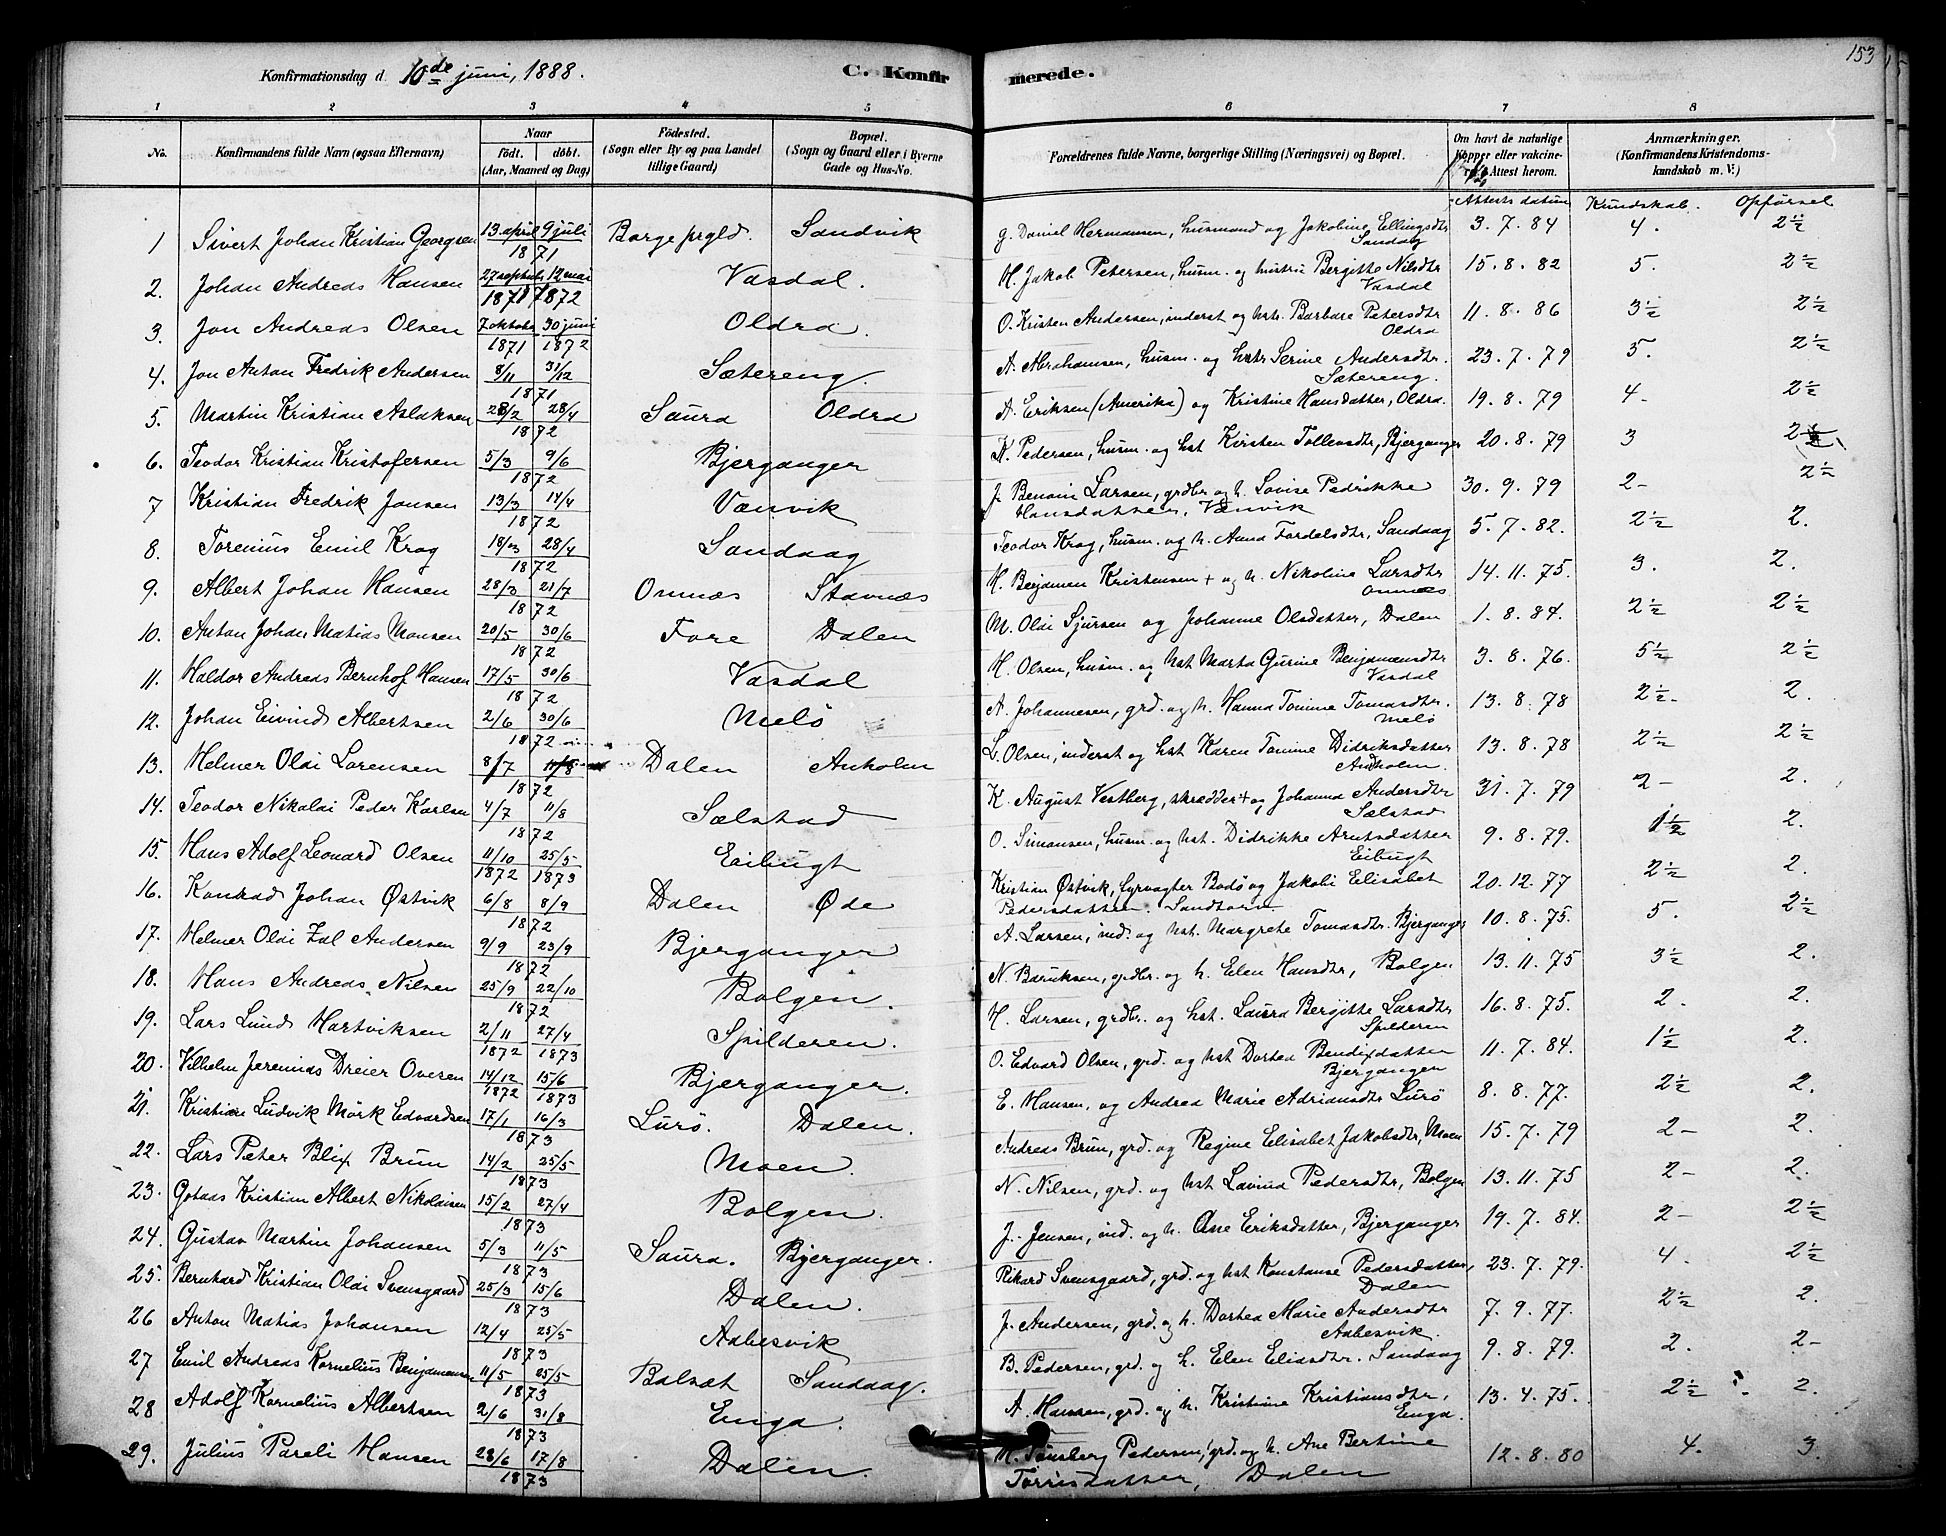 153
Konfirmationsdag d. 10de juni, 1888. C. Konfirmerede.
1 2 3 4 5 6 7 8
No. Konfirmandens fulde Navn (ogsaa Efternavn) Naar født. døbt. (Aar, Maaned og Dag) Fødested. (Sogn eller By og paa Landet tillige Gaard) Bopæl. (Sogn og Gaard eller i Byerne Gade og Hus-No. Forældrenes fulde Navne, borgerlige Stilling (Næringsvei) og Bopæl. Om havt de naturlige Kopper eller vakcineret. Attest herom. Anmærkninger. (Konfirmandens Kristendomskundskab m. V.)
Attests datum Kundskab. Opførsel
1 Sivert Johan Kristian Georgsen 13 april 9 juli 1871 Borge prgld. Sandvik G. Daniel Hermansen, husmand og Jakobine Ellingsdtr Sandaag 3.7.84 4. 2½
2. Johan Andreas Hansen 27 septbr 1871 12 mai 1872 Vasdal. H. Jakob Petersen, husm. og hustru Bergitte Nilsdtr Vasdal 15.8.82 5. 2½
3. Jon Andreas Olsen 7 oktober 1871 30 juni 1872 Oldra. O. Kristen Andersen, inderst og hstr. Barbare Petersdtr Oldra 11.8.86 3½ 2½
4. Jon Anton Fredrik Andersen 8/11 31/12 1871 Sætereng. A. Abrahamsen, husm. og hstr Serine Andersdtr. Sætereng. 23.7.79 5. 2½
5. Martin Kristian Aslaksen 28/2 28/4 1872 Saura Oldra A. Eriksen (Amerika) og Kristine Hansdatter, Oldra. 19.8.79 4- 2½
6. Teodor Kristian Kristofersen 5/3 9/6 1872 Bjerganger K. Pedersen, husm. og hst Kirsten Tollevsdtr, Bjerganger 20.8.79 3 2½
7 Kristian Fredrik Jonsen 13/3 14/4 1872 Vænvik J. Benoni Larsen, grdbr og h. Lovise Pedrikke Hansdatter, Vænvik 30.9.79 2- 2½
8. Torenius Emil Krog 18/3 28/4 1872 Sandaag Teodor Krog, husm. og h. Anna Fordelsdtr, Sandaag 5.7.82. 2½ 2.
9. Albert Johan Hansen 28/3 21/7 1872 Onnæs Stavnæs H. Benjamen Kristensen + og h. Nikoline Larsdtr Onnæs 14.11.75. 3. 2.
10. Anton Johan Matias Monsen 20/5 30/6 1872 Fore Dalen M. Oldi Sjursen og Johanne Olsdatter, Dalen 1.8.84. 2½ 2½
11. Haldor Andreas Bernhof Hansen 17/5 30/6 1872 Vasdal H. Olsen, husm. og hst Marta Gurine Benjamensdtr Vasdal 3.8.76. 5½ 2½
12. Johan Eivind Albertsen 2/6 30/6 1872 Melø A. Johannesen, grd. og h. Hanna Tomine Tomasdtr. Melø 13.8.78 2½- 2.
13. Helmer Oldi Lorensen 8/7 11/8 1872 Dalen Anholm L. Olsen, inderst og hst Karen Tomine Didriksdatter Andholm. 13.8.78 2½ 2½
14. Teodor Nikolai Peder Karlsen 4/7 11/8 1872 Sælstad K. August Vestberg, skrædder + og Johanna Andersdtr Sælstad 31.7.79 2- 2.
15. Hans Adolf Leonard Olsen 11/10 1872 25/5 1873 Eibugt O. Simonsen, husm. og hst. Didrikke Arntsdatter Eibugt 9.8.79. 1½ 2.
16. Konrad Johan Østvik 6/8 8/9 1872 Dalen Øde Kristian Østvik, fyrvagter Bodø og Jakobi Elisabet Pedersdatter. 20.12.77 2½ 2.
17. Helmer Oldi Zal Andersen 9/9 23/9 1872 Bjerganger A. Larsen, ind. og hst. Margrete Tomasdtr. Bjerganger 10.8.75. 5. 2½
18. Hans Andreas Nilsen 25/9 22/10 1872 Bolgen. N. Baruksen, grdbr. og h. Elen Hansdtr, Bolgen 13.11.75 3½ 2.
19. Lars Lund Hartviksen 2/11 1872 27/4 1873 Spilderen. H. Larsen, grdbr. og hst. Laura Bergitte Larsdtr Spilderen 16.8.75. 2. 2.
20. Vilhelm Jeremias Dreier Ovesen 14/12 1872 15/6 1873 Bjerganger. O. Edvard Olsen, grd. og hst Dortea Bendixdatter Bjerganger 11.7.84. 1½ 2.
21. Kristian Ludvik Mørk Edvardsen 17/1 16/3 1873 Lurø. Dalen. E. Hansen, og Andrea Marie Adriansdtr Lurø 8.8.77. 2½ 2.
22. Lars Peter Blix Brun 14/2 25/5 1873 Moen. Andreas Brun, grd. og Regine Elisabet Jakobsdtr, Moen 15.7.79 2- 2.
23. Gotaas Kristian Albert Nikolaisen 15/2 27/4 1873 Bolgen. N. Nilsen, grd. og hst Lavina Pedersdtr, Bolgen 13.11.75 2- 2.
24. Gustav Martin Johansen 5/3 11/5 1873 Saura. Bjerganger. J. Jensen, ind. og h. Ane Eriksdatter, Bjerganger 19.7.84. 2- 2½
25. Bernhard Kristian Oldi Svensgaard 25/3 15/6 1873 Dalen. Rikard Svensgaard, grd. og hst Konstanse Pedersdatter, Dalen 23.7.79. 4. 2½
26 Anton Matias Johansen 12/4 25/5 1873 Aabesvik J. Andersen, grd. og h. Dortea Marie Andersdtr Aabesvik. 7.9.77. 2½ 2.
27 Emil Andreas Kornelius Benjamensen 11/5 25/5 1873 Balsæt Sandaag. B. Pedersen, grd. og h. Elen Eliasdtr. Sandaag 9.8.79. 2. 2-
28 Adolf Kornelius Albertsen 2/6 31/8 1873 Enga. A. Hansen, grd. og h. Kristine Kristiansdtr, Enga. 13.4.75. 2½- 2.
29. Julius Pareli Hansen 28/6 17/8 1873 Dalen. H. Tønsberg Pedersen, grd. og h. Ane Bertine Torrisdatter, Dalen 12.8.80 4. 3.